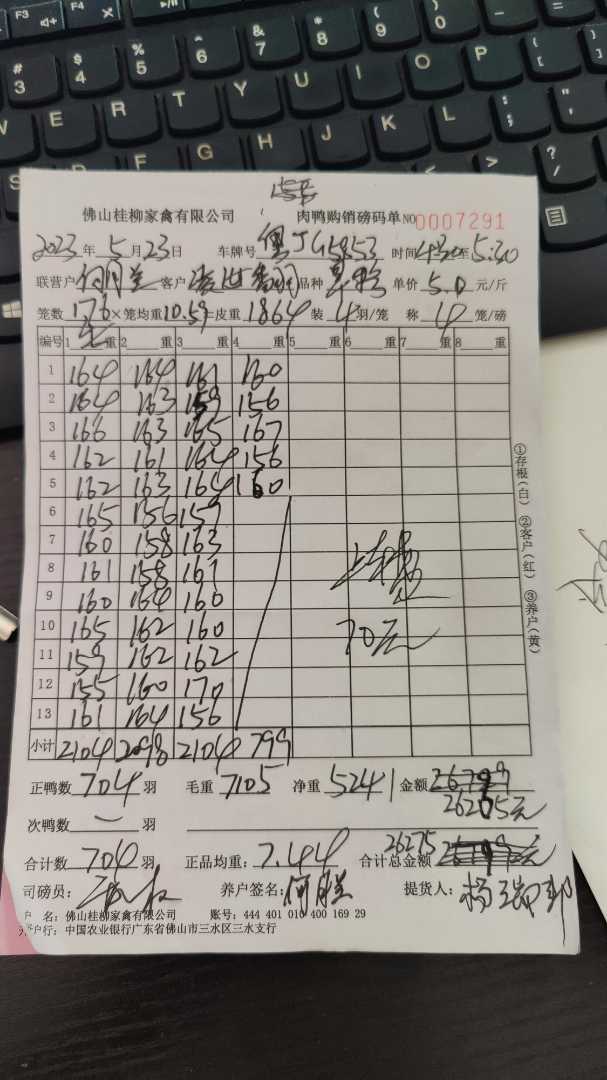 佛山桂柳家禽有限公司 肉鸭购销磅码单 NO 0007291
2023年5月23日 车牌号 JG5853 时间4:30至5:30
联营户 客户 品种 单价5.0元/斤
笼数176×笼均重10.59=皮重1864 装4羽/笼 称4笼/磅
编号 1 重 2 重 3 重 4 重 5 重 6 重 7 重 8 重
1 164 164 161 160
2 164 163 159 156
3 166 163 165 167
4 162 161 164 156
5 162 163 164 160
6 165 156 159
7 160 158 163
8 161 158 161
9 160 164 160
10 165 162 160
11 159 162 162
12 155 160 170
13 161 164 156
70元
小计 2104 2098 2104 799
①存根(白) ②客户(红) ③养户(黄)
正鸭数704羽 毛重7105 净重5241 金额
26205元
次鸭数一羽
合计数704羽 正品均重:7.44 合计总金额26275元
司磅员: 养户签名:何月兰 提货人:
户 名:佛山桂柳家禽有限公司 账号:444 401 010 400 169 29
开户行:中国农业银行广东省佛山市三水区三水支行